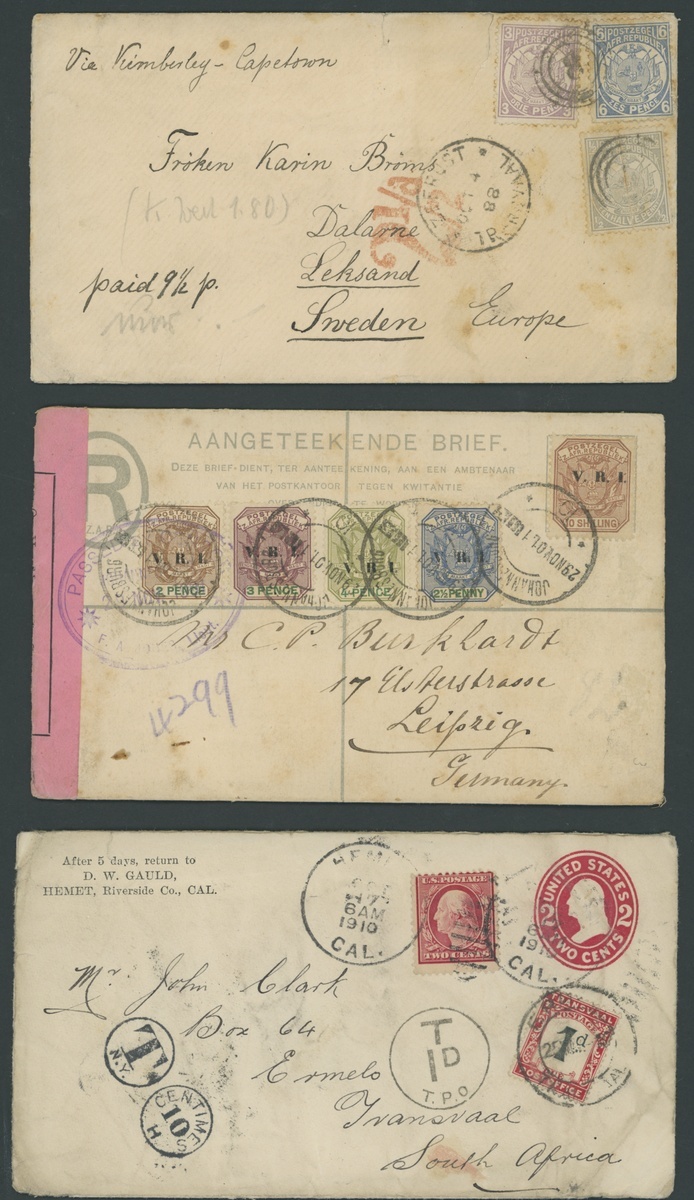 Via Kimberley - Capetown
Fröken Karin Broms
Dalarne
Leksand
Sweden Europe
paid 9½ p.
POSTZEGEL
AFR. REPUBLIEK
3 3
DRIE PENCE
POSTZEGEL
AFR. REPUBLIEK
6 6
ZES PENCE
ZEERUST TRANSVAAL
OCT 4
88
AANGETEEKENDE BRIEF.
DEZE BRIEF-DIENT, TER AANTEEKENING, AAN EEN AMBTENAAR
VAN HET POSTKANTOOR TEGEN KWITANTIE
R
POSTZEGEL
V. R. I.
10 SHILLING
V. R. I.
2 PENCE
V. R. I.
3 PENCE
V. R. I.
4 PENCE
V. R. I.
2½ PENNY
29 NOV 01
JOHANNESBURG
Mr C. P. Burkhardt
17 Elsterstrasse
Leipzig.
Germany.
4299
After 5 days, return to
D. W. GAULD,
HEMET, Riverside Co., CAL.
HEMET
6 AM
1910
CAL.
U.S. POSTAGE
TWO CENTS
UNITED STATES
2 2
TWO CENTS
CAL.
Mr John Clark
Box 64
Ermelo
Transvaal
South Africa
T
N.Y.
CENTIMES
10
H
T
1D
T.P.O
TRANSVAAL
POSTAGE
1d
POST OFFICE